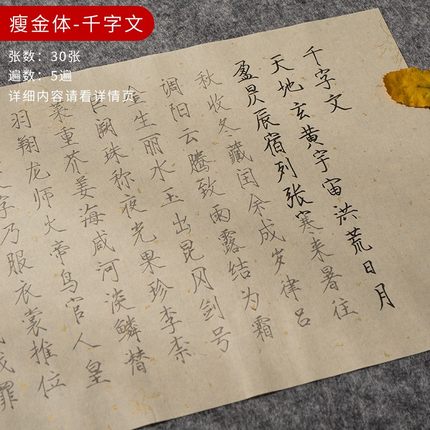 瘦金体-千字文
张数：30张
遍数：5遍
详细内容请看详情页
千字文
天地玄黄宇宙洪荒日月
盈昃辰宿列张寒来暑往
秋收冬藏闰余成岁律吕
调阳云腾致雨露结为霜
金生丽水玉出昆冈剑号
巨阙珠称夜光果珍李柰
菜重芥姜海咸河淡鳞潜
羽翔龙师火帝鸟官人皇
字乃服衣裳推位
伐罪